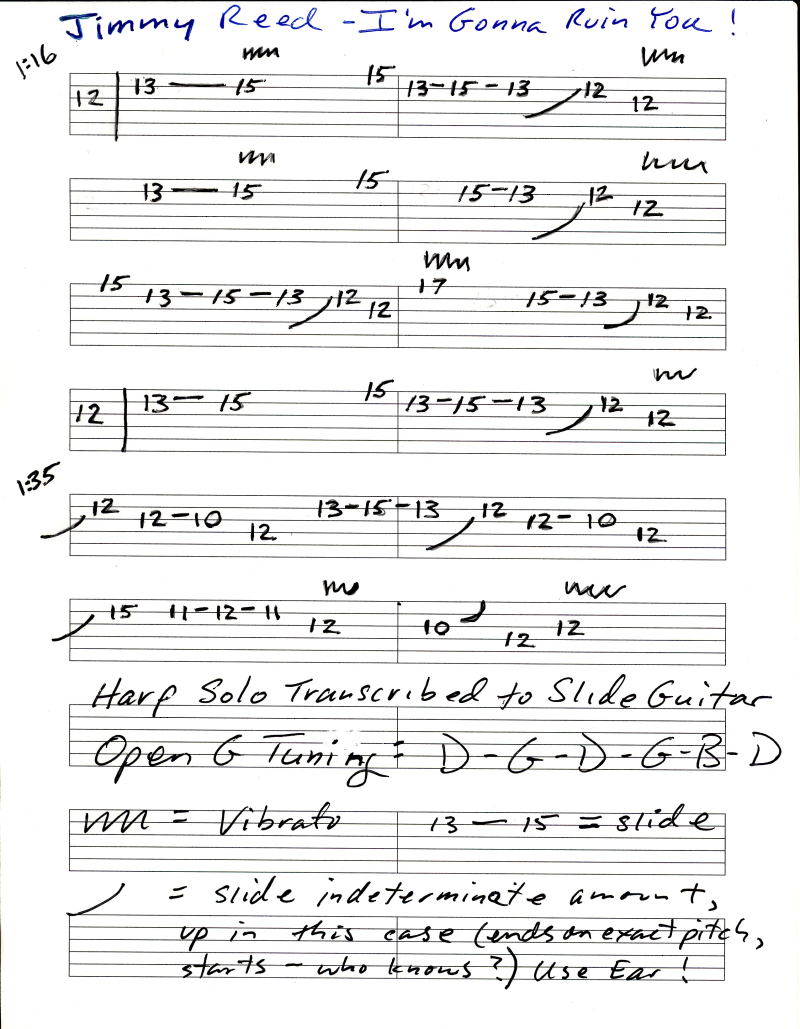 Jimmy Reed - I'm Gonna Ruin You!
1:16
12 | 13 — 15 15 13-15-13 12 12
13 — 15 15 15-13 12 12
15 13-15-13 12 12 17 15-13 12 12
12 | 13 — 15 15 13-15-13 12 12
1:35
12 12-10 12 13-15-13 12 12-10 12
15 11-12-11 12 10 12 12
Harp Solo Transcribed to Slide Guitar
Open G Tuning: D-G-D-G-B-D
= Vibrato 13 — 15 = slide
= slide indeterminate amount,
up in this case (ends on exact pitch,
starts - who knows?) Use Ear!